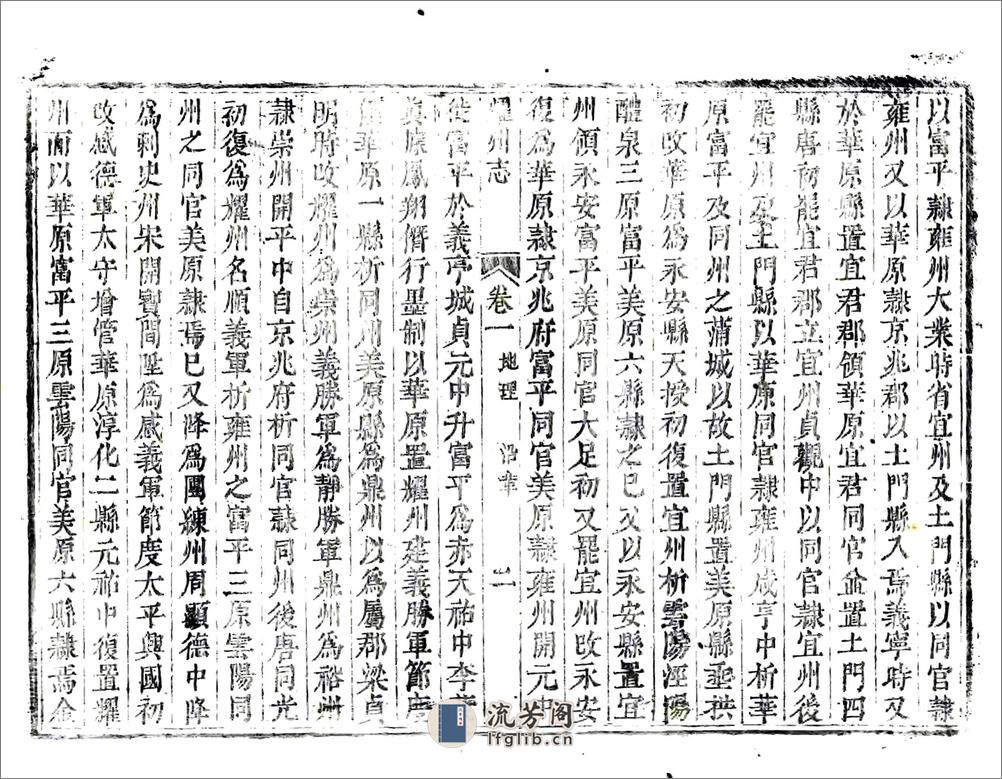 以富平隷雍州大業時省宜州及土門縣以同官隷
雍州又以華原隷京兆郡以土門縣入焉義寧時又
於華原縣置宜君郡領華原宜君同官並置土門四
縣唐初罷宜君郡立宜州貞觀中以同官隷宜州後
罷宜州及土門縣以華原同官隷雍州咸亨中析華
原富平及同州之蒲城以故土門縣置美原縣垂拱
初改華原爲永安縣天授初復置宜州析雲陽涇陽
醴泉三原富平美原六縣隷之已又以永安縣置宜
州領永安富平美原同官大足初又罷宜州改永安
復爲華原隷京兆府富平同官美原隷雍州開元中
耀州志 卷一 地理 沿革 二
徙富平於義亭城貞元中升富平爲赤天祐中李茂
貞據鳳翔僭行墨制以華原置耀州建義勝軍節度
華原一縣析同州美原縣爲鼎州以爲屬郡梁貞
明時改耀州爲崇州義勝軍爲靜勝軍鼎州爲裕州
隷崇州開平中自京兆府析同官隷同州後唐同光
初復爲耀州名順義軍析雍州之富平三原雲陽同
州之同官美原隷焉已又降爲團練州周顯德中降
爲刺史州宋開寶間陞爲感義軍節度太平興國初
改感德軍太守增管華原淳化二縣元祐中復置耀
州而以華原富平三原雲陽同官美原六縣隷焉金
流芳阁
lfglib.cn